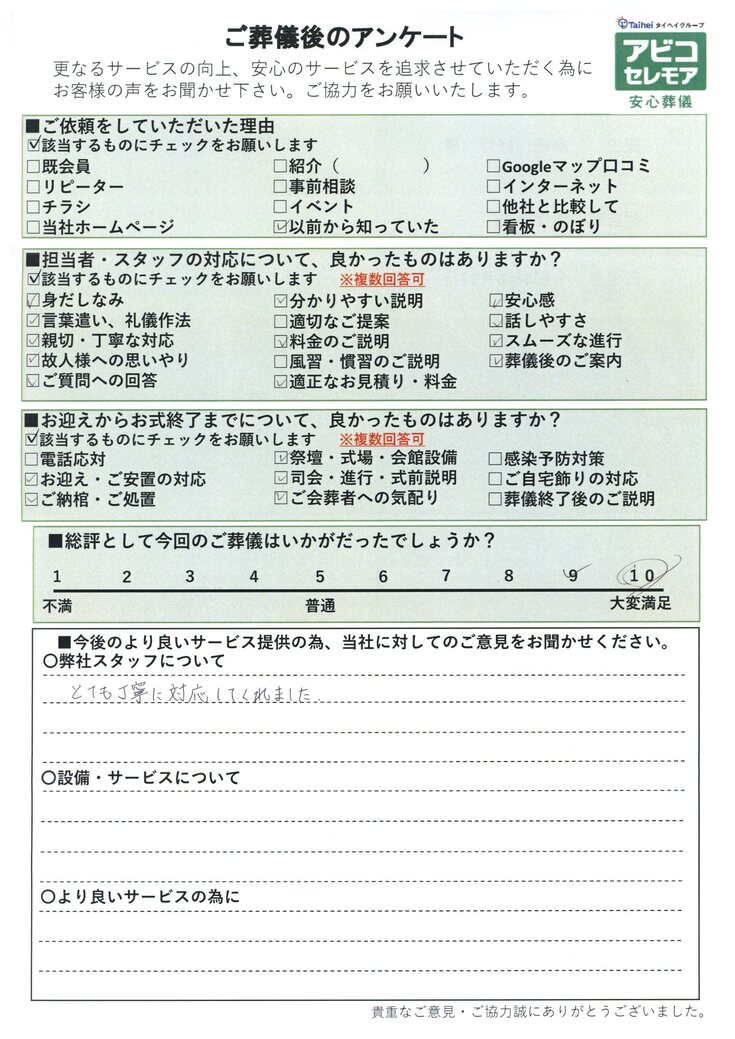 ご葬儀後のアンケート
Taihei タイヘイグループ
アビコ
セレモア
安心葬儀
更なるサービスの向上、安心のサービスを追求させていただく為に
お客様の声をお聞かせ下さい。ご協力をお願いいたします。
■ご依頼をしていただいた理由
☑該当するものにチェックをお願いします
□既会員 □紹介（　　　　　） □Googleマップ口コミ
□リピーター □事前相談 □インターネット
□チラシ □イベント □他社と比較して
□当社ホームページ ☑以前から知っていた □看板・のぼり
■担当者・スタッフの対応について、良かったものはありますか？
☑該当するものにチェックをお願いします ※複数回答可
☑身だしなみ ☑分かりやすい説明 ☑安心感
☑言葉遣い、礼儀作法 □適切なご提案 ☑話しやすさ
☑親切・丁寧な対応 ☑料金のご説明 ☑スムーズな進行
☑故人様への思いやり □風習・慣習のご説明 ☑葬儀後のご案内
☑ご質問への回答 ☑適正なお見積り・料金
■お迎えからお式終了までについて、良かったものはありますか？
☑該当するものにチェックをお願いします ※複数回答可
□電話応対 ☑祭壇・式場・会館設備 □感染予防対策
☑お迎え・ご安置の対応 ☑司会・進行・式前説明 □ご自宅飾りの対応
☑ご納棺・ご処置 ☑ご会葬者への気配り □葬儀終了後のご説明
■総評として今回のご葬儀はいかがだったでしょうか？
1 2 3 4 5 6 7 8 9 10
不満 普通 大変満足
■今後のより良いサービス提供の為、当社に対してのご意見をお聞かせください。
〇弊社スタッフについて
とても丁寧に対応してくれました.
〇設備・サービスについて
〇より良いサービスの為に
貴重なご意見・ご協力誠にありがとうございました。